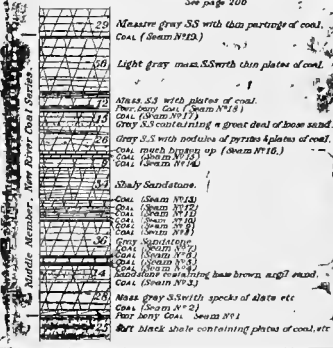 See page 206
29 Massive gray SS with thin partings of coal.
COAL (Seam Nº19.)
58 Light gray mass. SS with thin plates of coal.
12 Mass. SS with plates of coal.
Poor bony COAL (Seam Nº18)
COAL (Seam Nº17)
15 Gray S.S containing a great deal of loose sand.
26 Gray S.S with nodules of pyrites & plates of coal.
COAL much broken up (Seam Nº16.)
COAL (Seam Nº15)
COAL (Seam Nº14)
34 Shaly Sandstone.
COAL (Seam Nº13)
COAL (Seam Nº12)
COAL (Seam Nº11)
COAL (Seam Nº10)
COAL (Seam Nº9)
COAL (Seam Nº8)
36 Gray Sandstone
COAL (Seam Nº7)
COAL (Seam Nº6)
COAL (Seam Nº5)
COAL (Seam Nº4)
14 Sandstone containing base brown argil sand.
COAL (Seam Nº3)
28 Mass gray S.S with specks of slate etc
COAL (Seam Nº2)
Poor bony COAL Seam Nº1
25 Soft black shale containing plates of coal, etc
Middle Member. New River Coal Series.